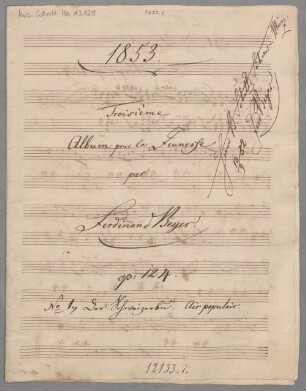 Mus. Schott Ha 13122
1853.
Troisième
Album pour la Jeunesse
par
Ferdinand Beyer.
op: 124.
No 1. Der Schweizerbub. Air populair.
12133.1.